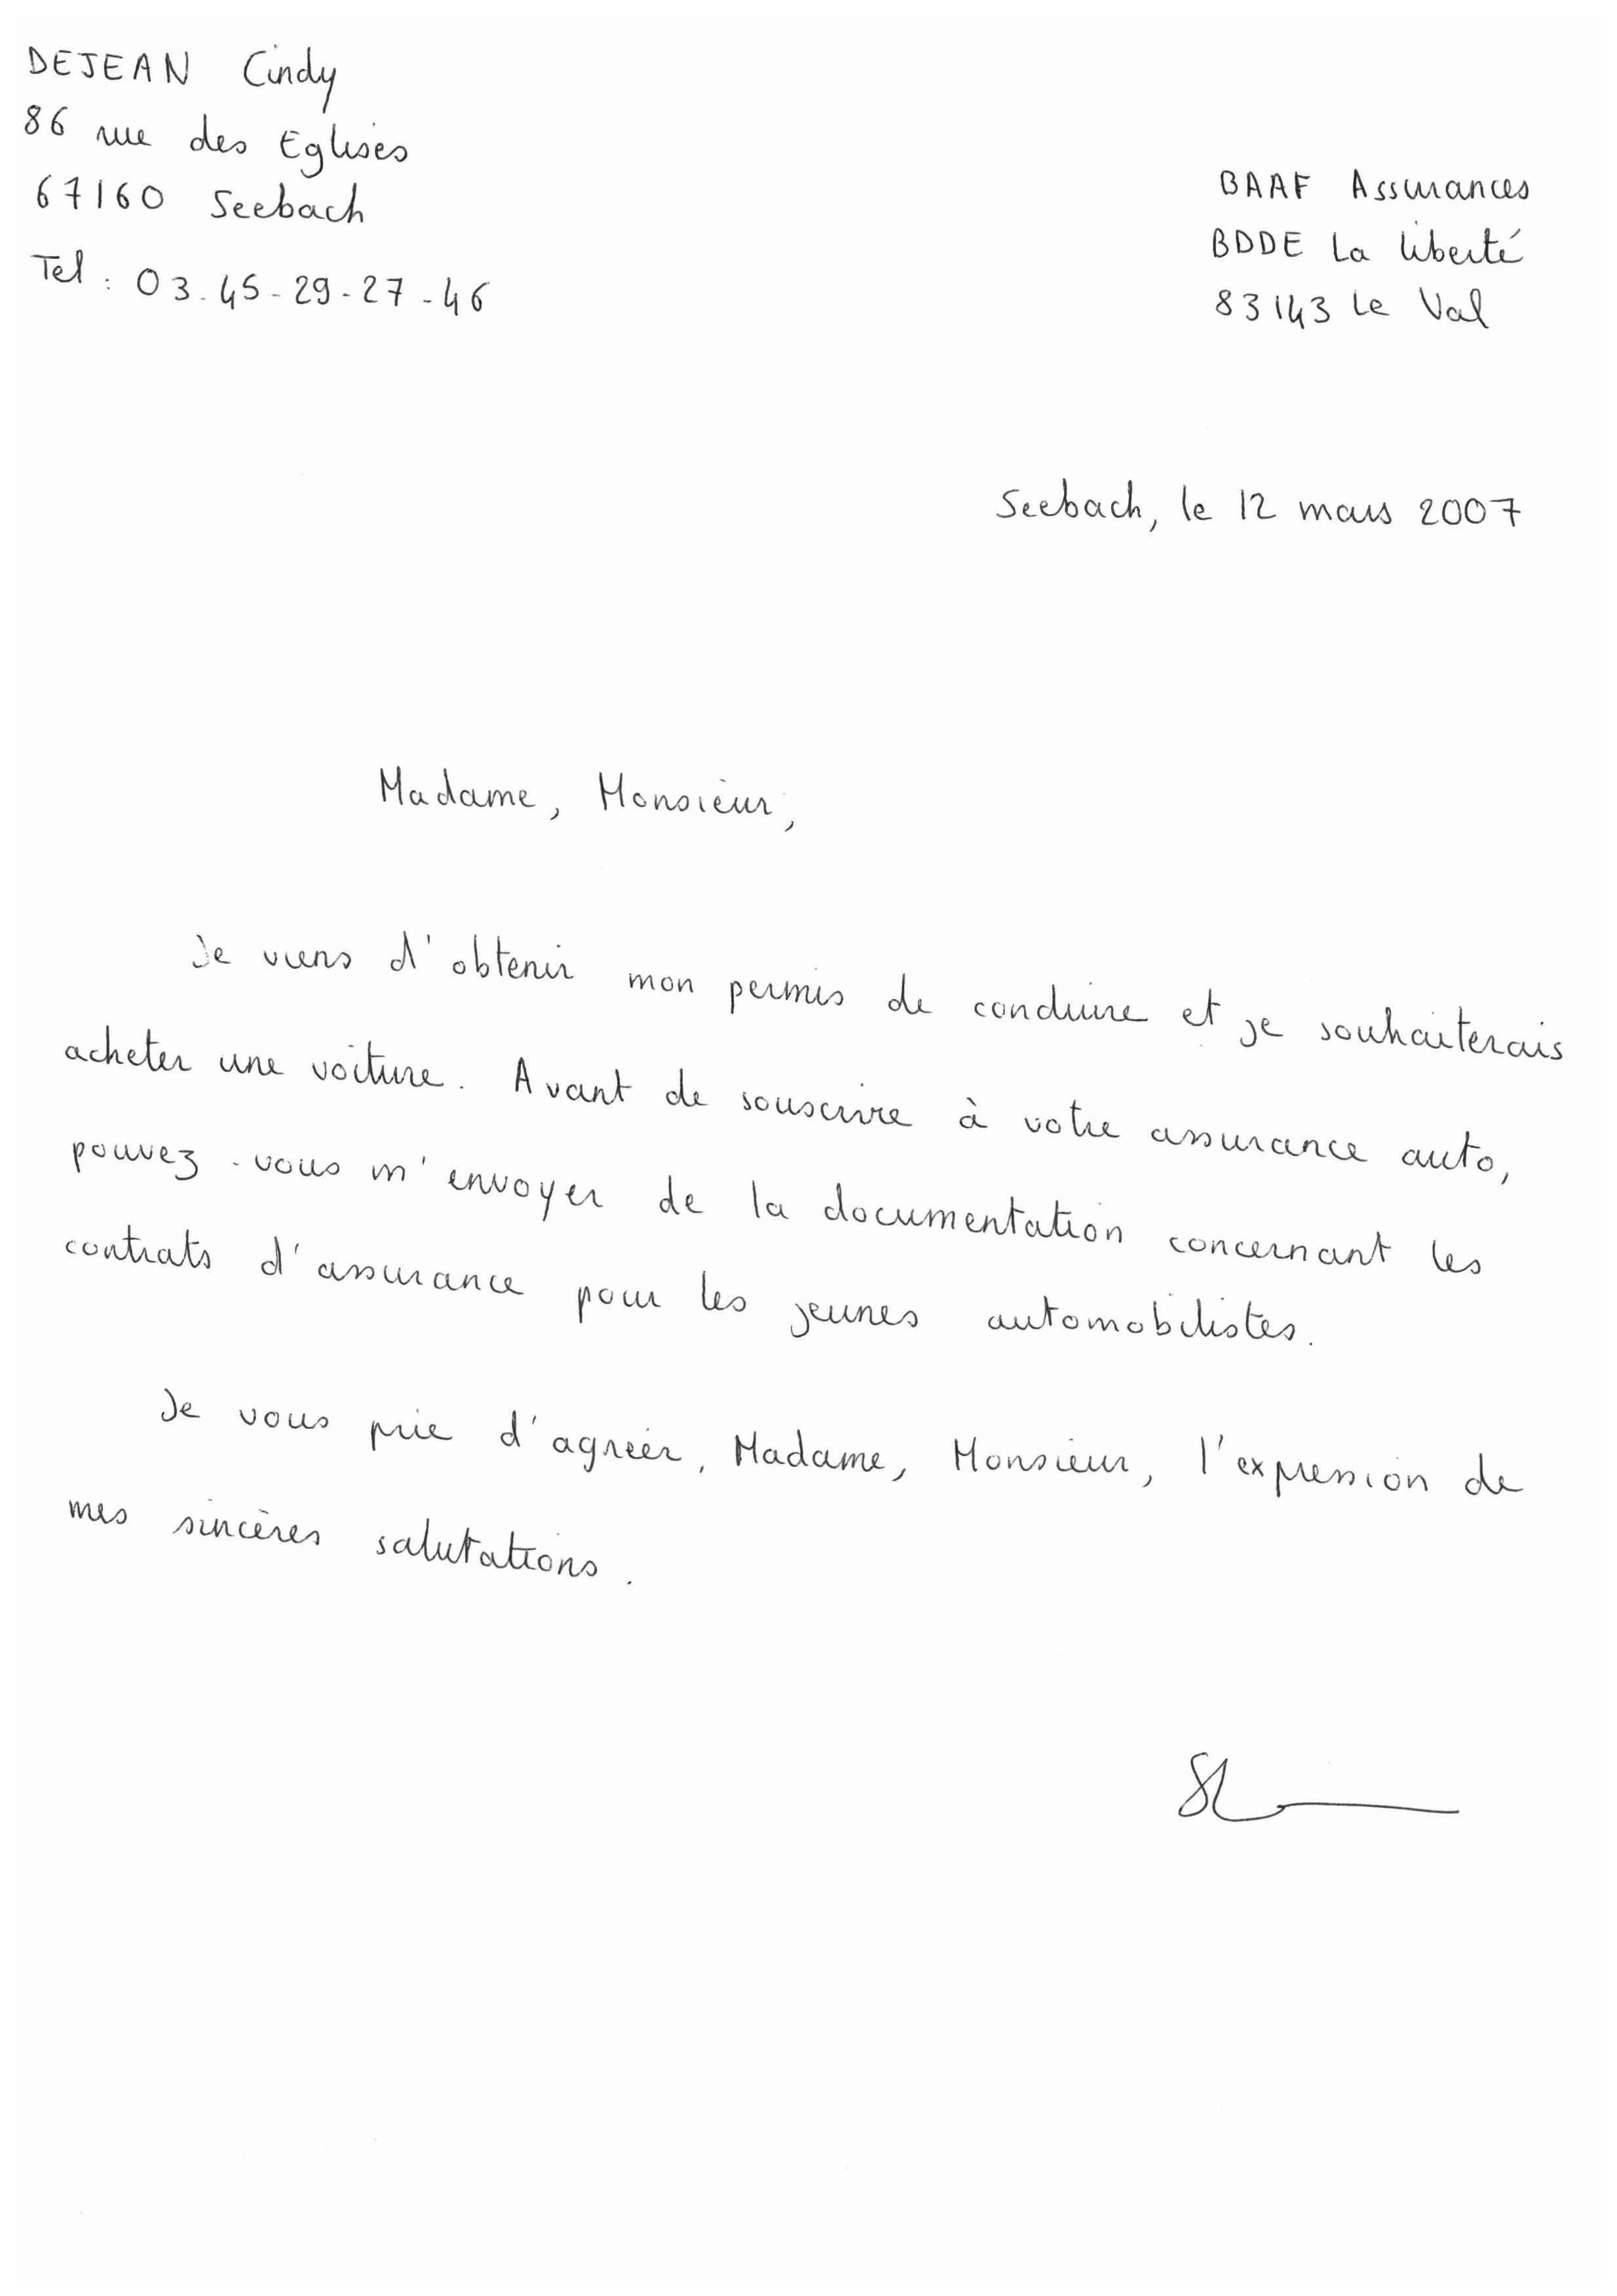 DEJEAN Cindy
86 rue des Eglises
67160 Seebach
Tel : 03-45-29-27-46
BAAF Assurances
BDDE La liberté
83143 Le Val
Seebach, le 12 mars 2007
Madame, Monsieur,
Je viens d'obtenir mon permis de conduire et je souhaiterais
acheter une voiture. Avant de souscrire à votre assurance auto,
pouvez-vous m'envoyer de la documentation concernant les
contrats d'assurance pour les jeunes automobilistes.
Je vous prie d'agréer, Madame, Monsieur, l'expression de
mes sincères salutations.